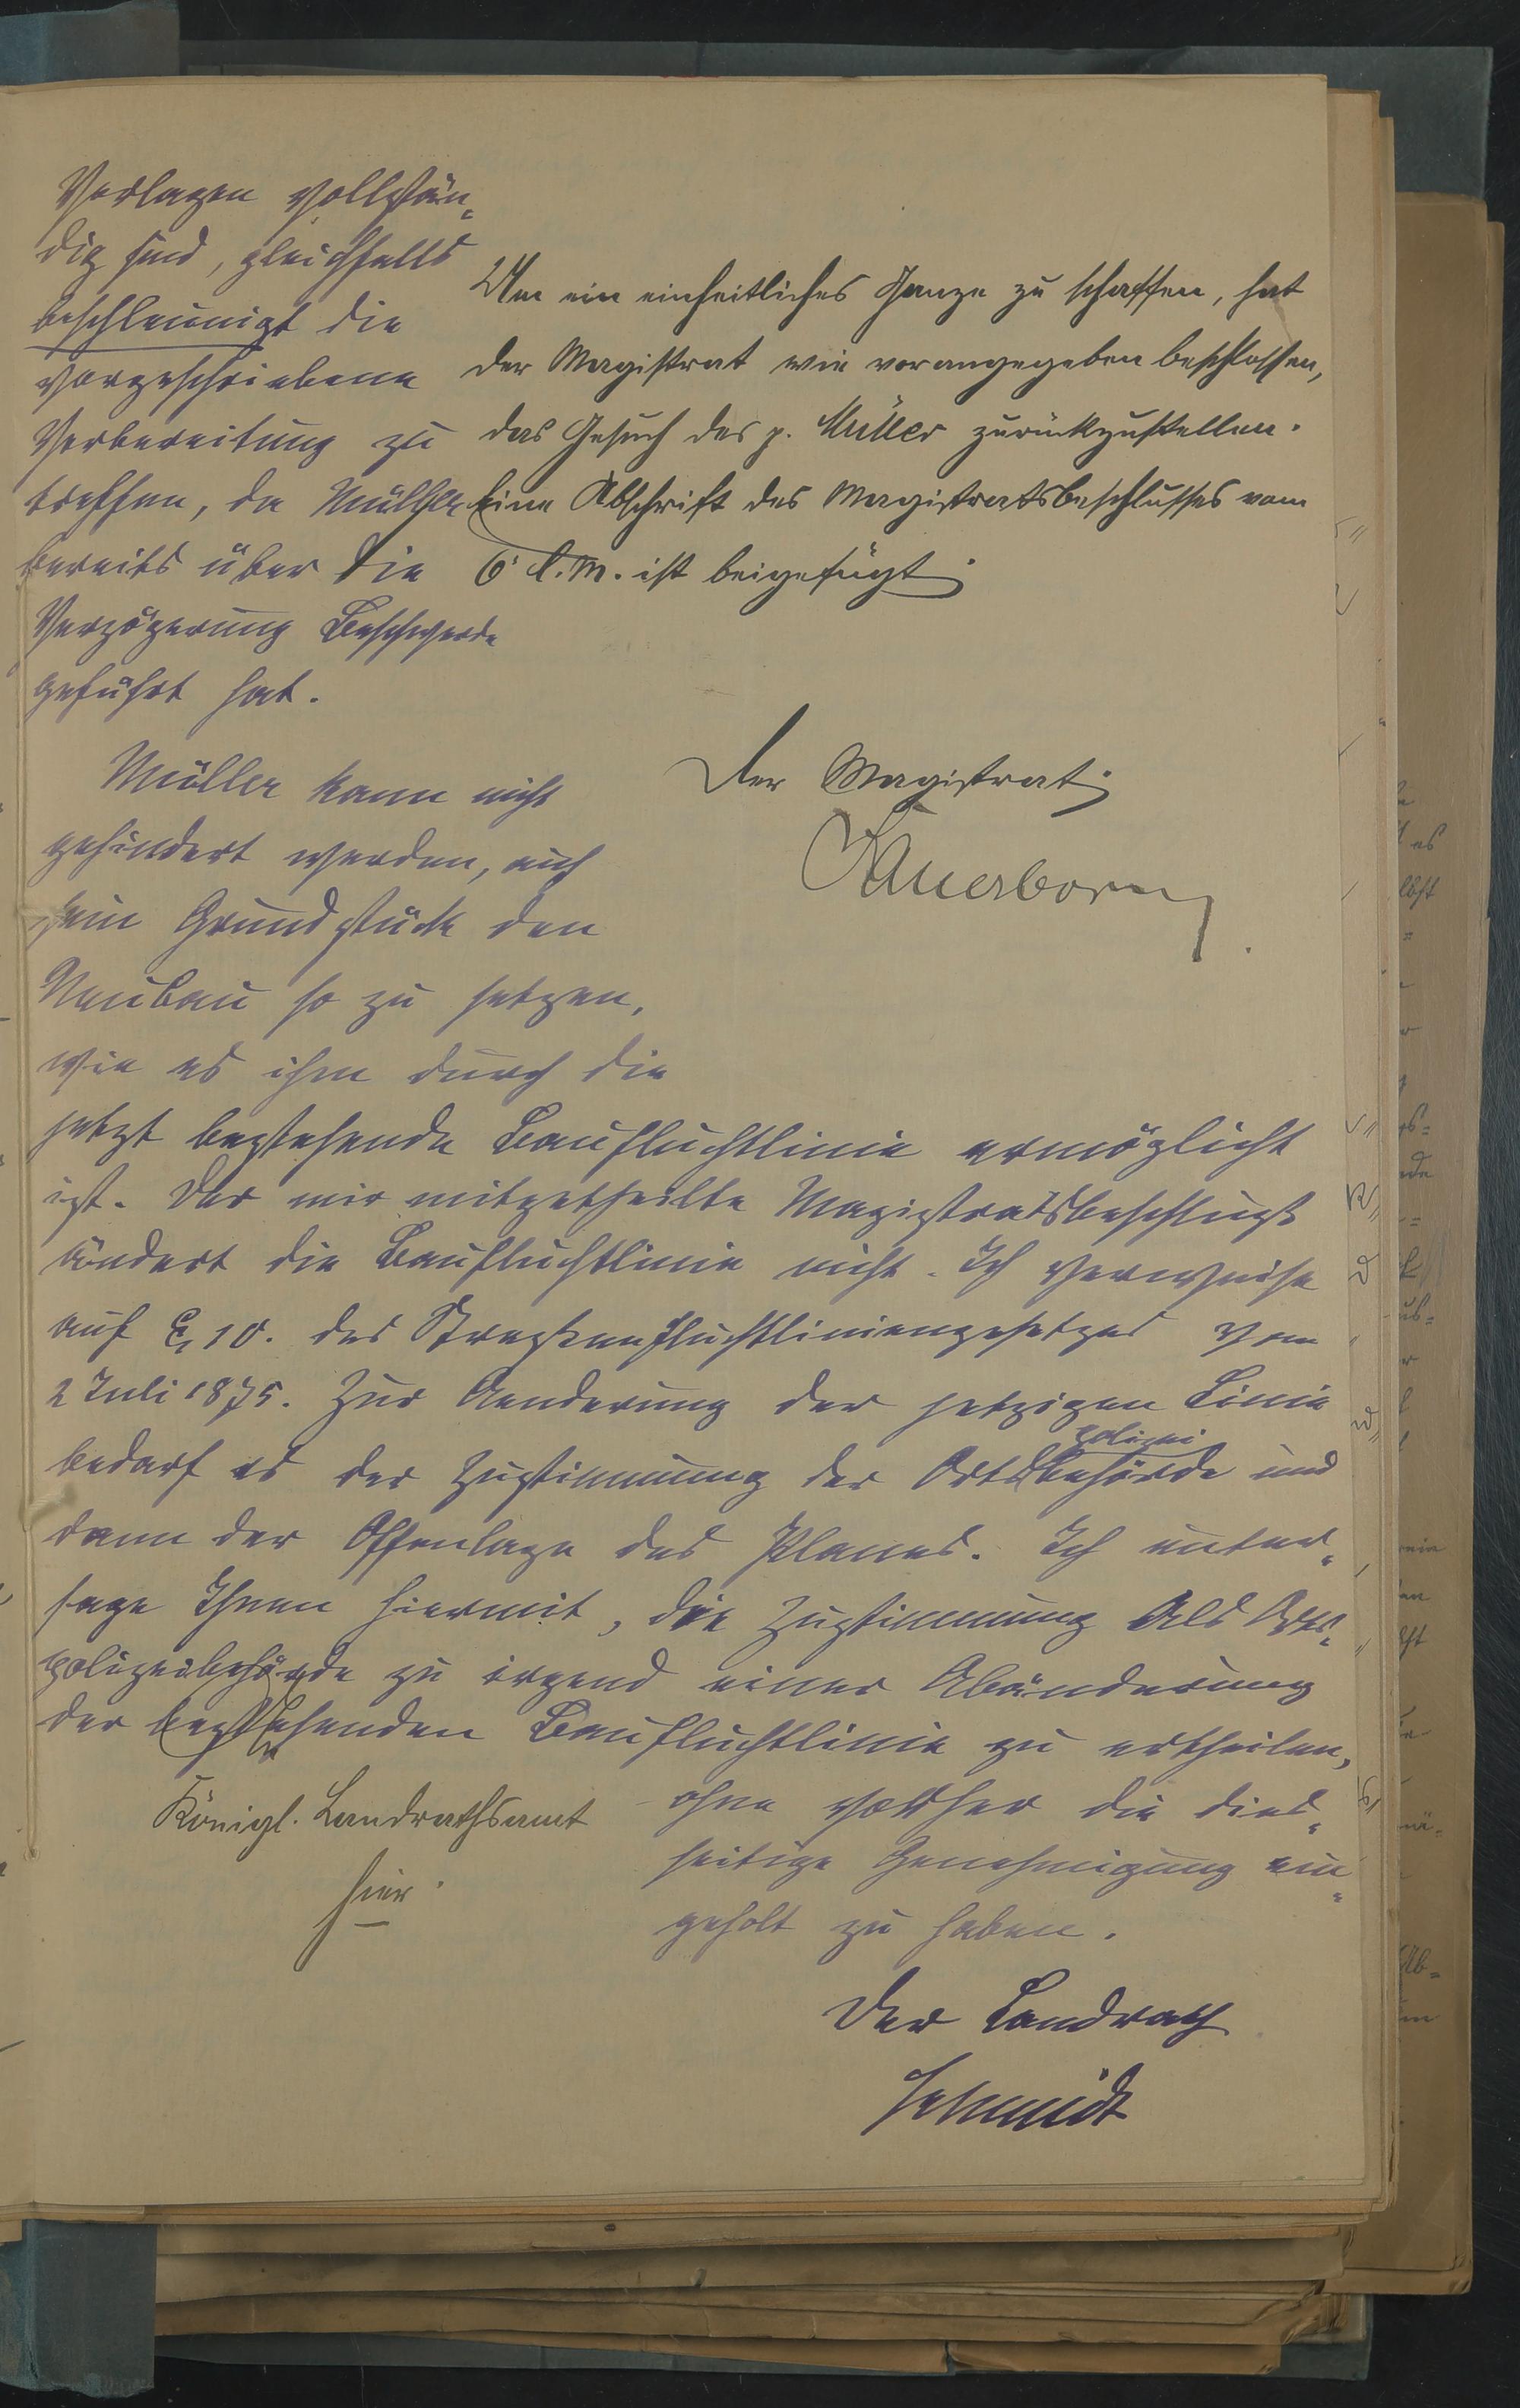 Um ein einheitliches Ganze zu schaffen, hat
der Magistrat wie vorangegeben beschlossen,
das Gesuch des p. Müller zurückzustellen.
Eine Abschrift des Magistratsbeschlusses vom
6. d. M. ist beigefügt.
Der Magistrat
Sauerborn
Königl. Landrathsamt
hier.
Vorlagen vollstän-
dig sind, gleichfalls
beschleunigt die
vorgeschriebene
Vorbereitung zu
treffen, da Müller
bereits über die
Verzögerung Beschwerde
geführt hat.
Müller kann nicht
gehindert werden, auf
sein Grundstück den
Neubau so zu setzen,
wie es ihm durch die
jetzt bestehende Baufluchtlinie ermöglicht
ist. Der mir mitgetheilte Magistratsbeschluß
ändert die Baufluchtlinie nicht. Ich verweise
auf § 10. des Straßenfluchtliniengesetzes vom
2 Juli 1875. Zur Aenderung der jetzigen Linie
bedarf es der Zustimmung der Ortspolizeibehörde und
dann der Offenlage des Planes. Ich unter-
sage Ihnen hiermit, die Zustimmung als Orts-
polizeibehörde zu irgend einer Abänderung
der bestehenden Baufluchtlinie zu ertheilen,
ohne vorher die dies-
seitige Genehmigung ein-
geholt zu haben.
Der Landrath
Schmidt